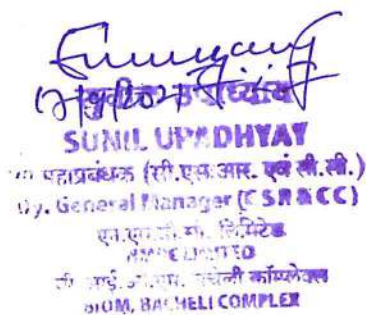 17/9/2021
सुनील उपाध्याय
SUNIL UPADHYAY
महाप्रबंधक (सी.एस.आर. एवं सी.सी.)
Dy. General Manager (CSR & CC)
एन.एम.डी.सी. लिमिटेड
NMDC LIMITED
बचेली कॉम्प्लेक्स
BIOM, BACHELI COMPLEX